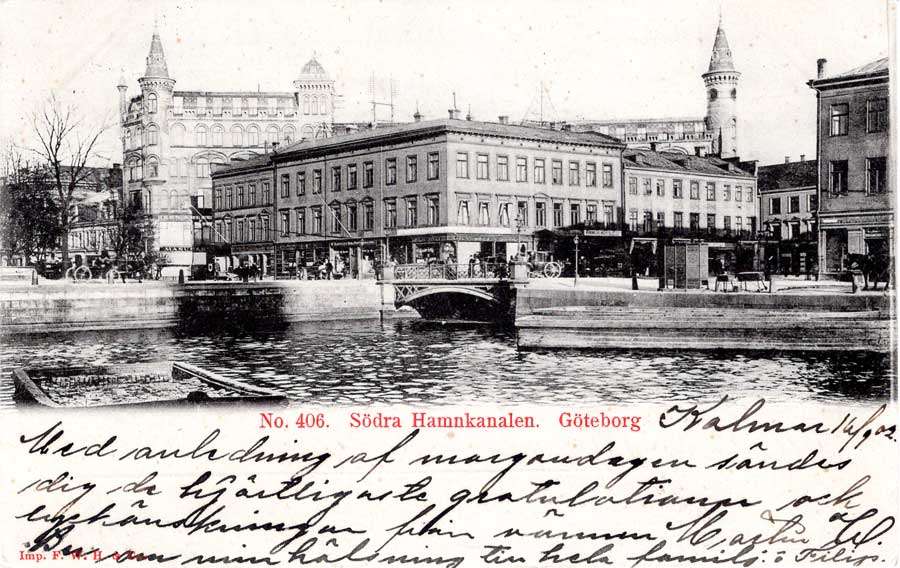 No. 406. Södra Hamnkanalen. Göteborg
Kalmar 16/9 02.
Med anledning af morgondagen sändes
dig de hjärtligaste gratulationer och
lyckönskningar från vännen Martin H.
Ber om min hälsning till hela familj. o Filips.
Imp. F. W. H. &